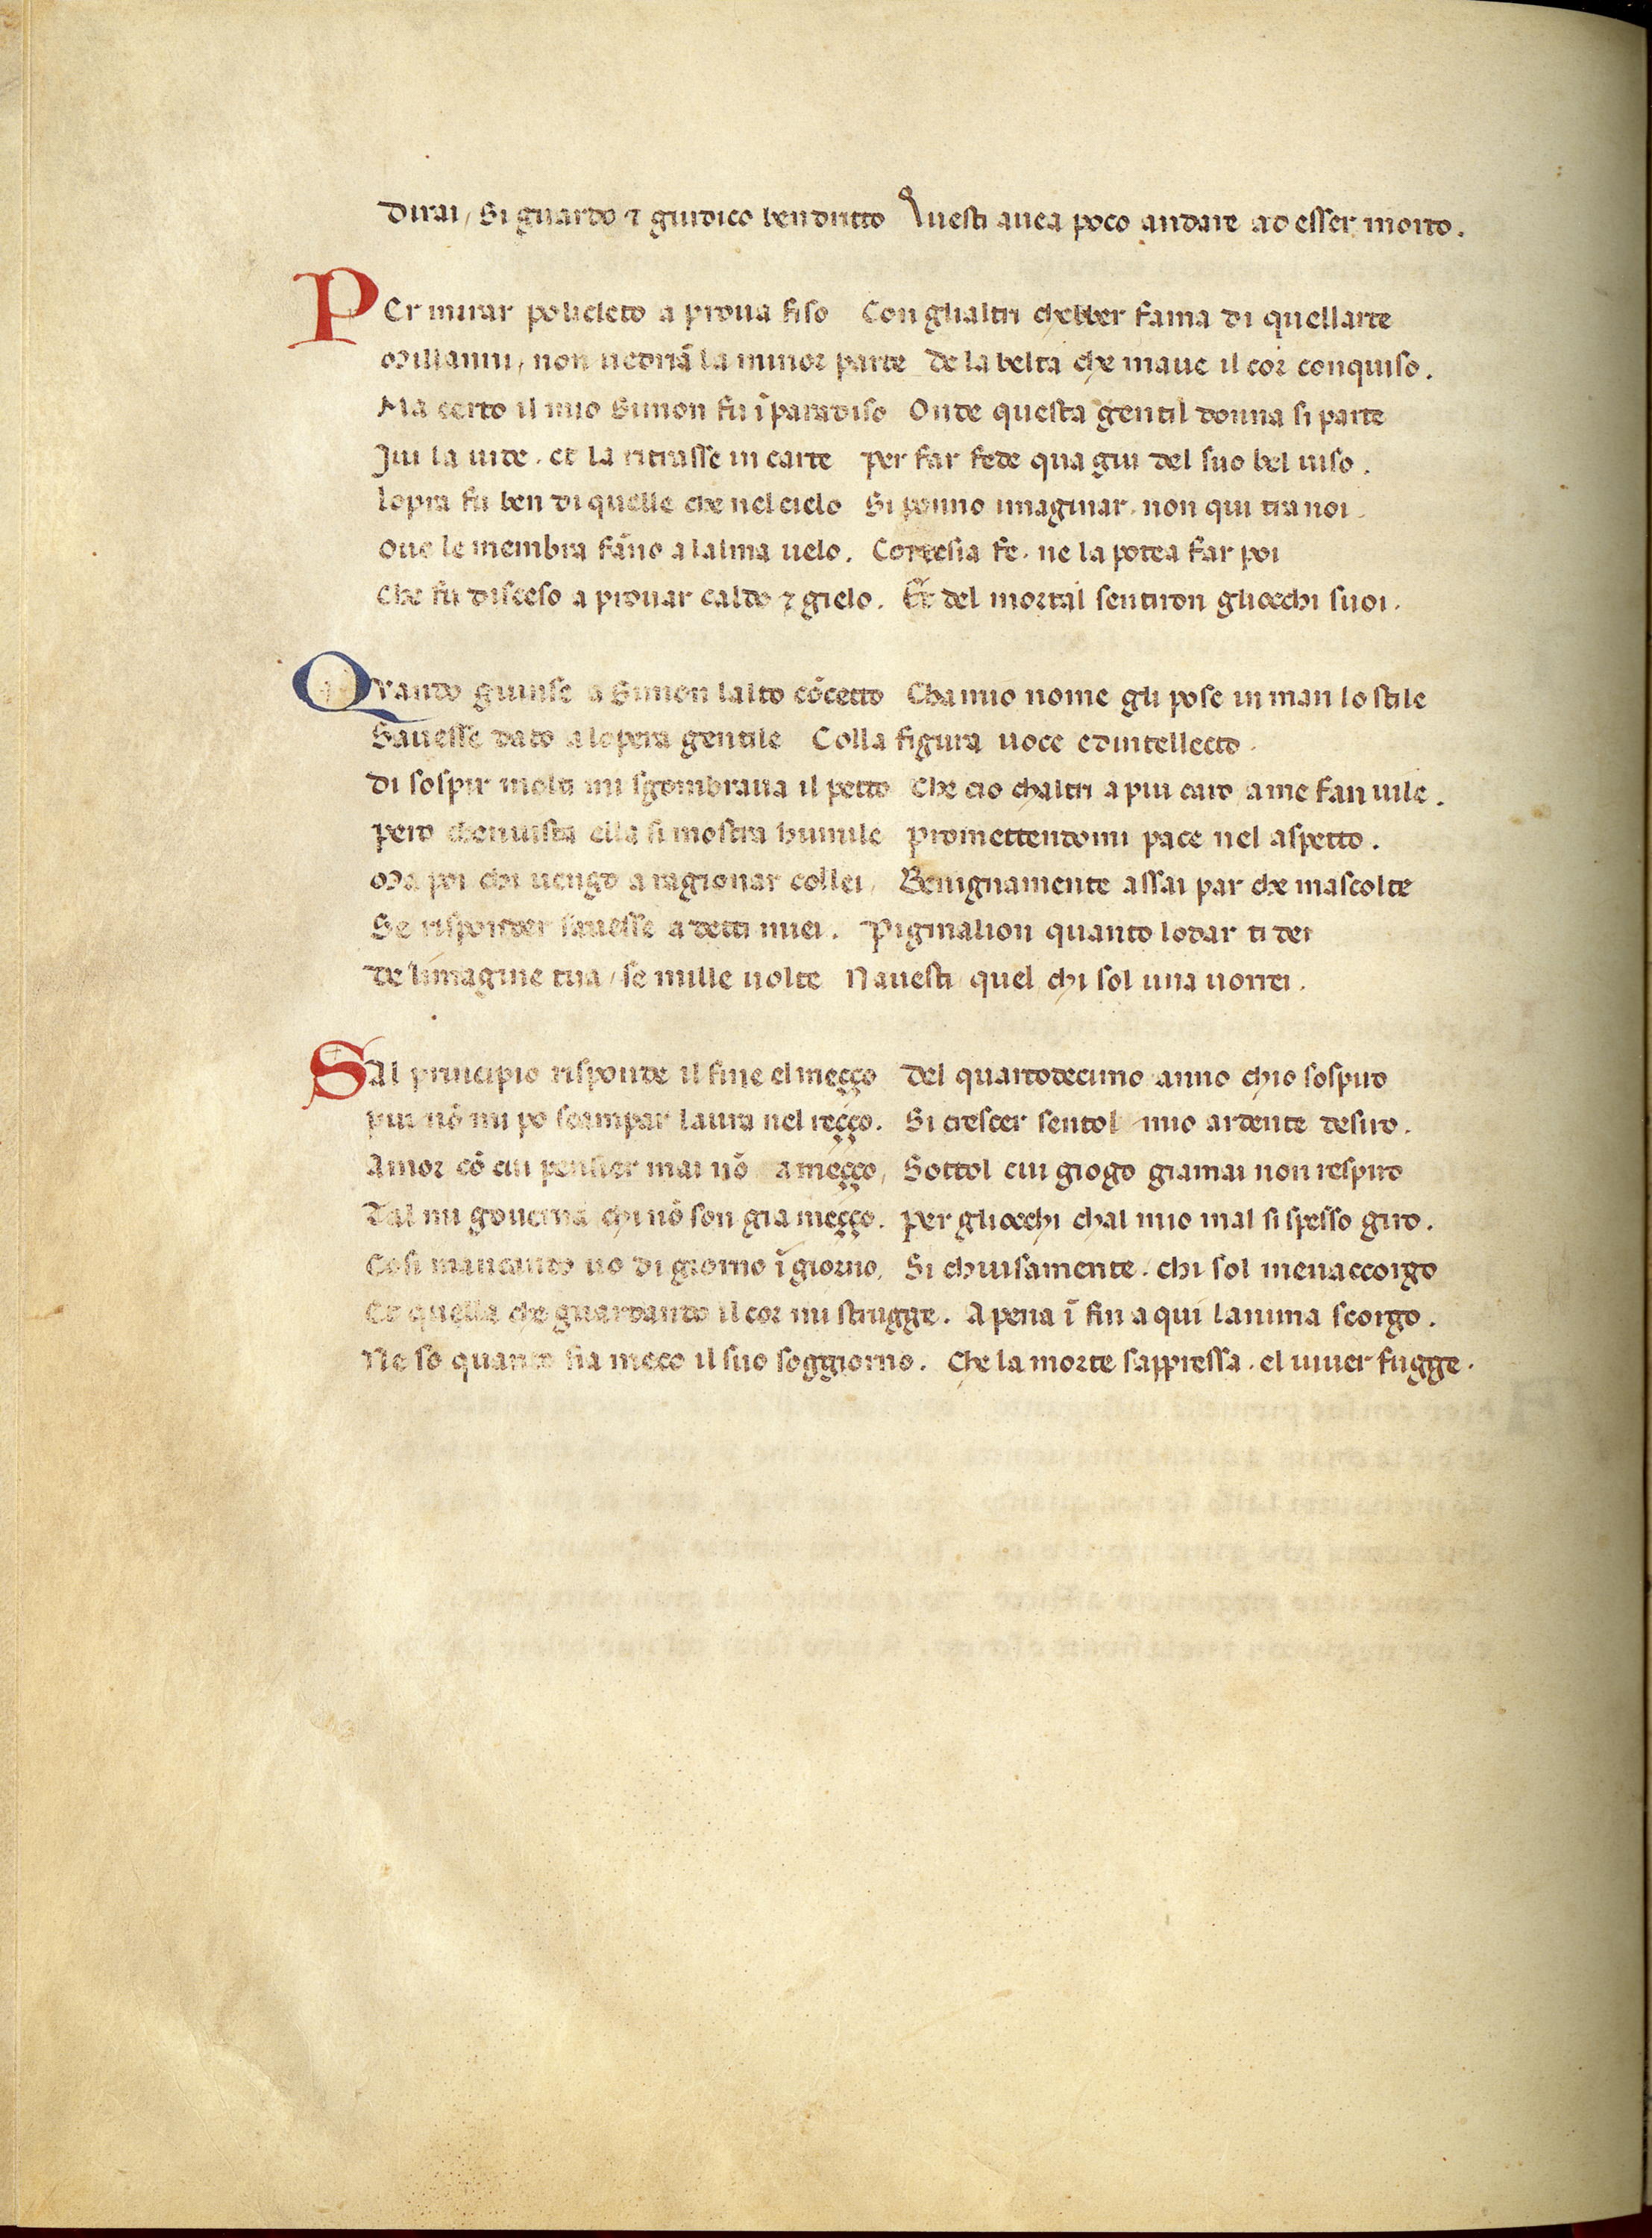 Dirai / Si guardo ⁊ giudico ben dritto Questi auea poco andare ad esser morto.
PEr mirar policleto a proua fiso Con glialtri chebber fama di quellarte
Millanni / non uedriā la minor parte de la belta che maue il cor conquiso.
Ma certo il mio Simon fu ī paradiso Onde questa gentil donna si parte
Jui la uide . et la ritrasse in carte per far fede qua giu del suo bel uiso.
lopra fu ben di quelle che nel cielo Si ponno imaginar . non qui tra noi .
Oue le membra fāno a lalma uelo. Cortesia fe . ne la potea far poi
Che fu disceso a prouar caldo ⁊ gielo. Et del mortal sentiron gliocchi suoi.
QVando giunse a Simon lalto cōcetto Cha mio nome gli pose in man lo stile
Sauesse dato a lopera gentile Colla figura uoce ed intellecto.
Di sospir molti mi sgombraua il petto Che cio chaltri a piu caro / a me fan uile.
pero chenuista ella si mostra humile promettendomi pace nel aspetto.
Ma poi chi uengo a ragionar collei / Benignamente assai par che mascolte
Se risponder sauesse a detti miei. Pigmalion quanto lodar ti dei
de limagine tua / se mille uolte Nauesti quel chi sol una uorrei.
SAl principio risponde il fine el meçço Del quartodecimo anno chio sospiro
piu nō mi po scampar laura nel reçço. Si crescer sentol mio ardente desiro.
Amor cō cui pensier mai nō a meçço / Sottol cui giogo giamai non respiro
Tal mi gouerna chi nō son gia meçço. per gliocchi chal mio mal si spesso giro.
Cosi mancando uo di giorno ī giorno / Si chiusamente . chi sol menaccorgo
Et quella che guardando il cor mi strugge. A pena ī fin a qui lanima scorgo.
Ne so quanto fia meco il suo soggiorno. Che la morte sappressa . el uiuer fugge.